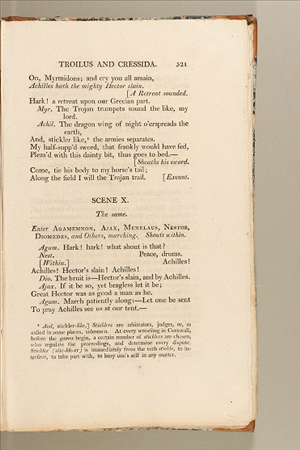 TROILUS AND CRESSIDA. 521
On, Myrmidons; and cry you all amain,
Achilles hath the mighty Hector slain.
[A Retreat sounded.
Hark! a retreat upon our Grecian part.
Myr. The Trojan trumpets sound the like, my
lord.
Achil. The dragon wing of night o'erspreads the
earth,
And, stickler like, the armies separates.
My half-supp'd sword, that frankly would have fed,
Pleas'd with this dainty bit, thus goes to bed.—
[Sheaths his sword.
Come, tie his body to my horse's tail;
Along the field I will the Trojan trail. [Exeunt.
SCENE X.
The same.
Enter Agamemnon, Ajax, Menelaus, Nestor,
Diomedes, and Others, marching. Shouts within.
Agam. Hark! hark! what shout is that?
Nest. Peace, drums.
[Within.] Achilles!
Achilles! Hector's slain! Achilles!
Dio. The bruit is—Hector's slain, and by Achilles.
Ajax. If it be so, yet bragless let it be;
Great Hector was as good a man as he.
Agam. March patiently along:—Let one be sent
To pray Achilles see us at our tent.—
And, stickler-like,] Sticklers are arbitrators, judges, or, as
called in some places, sidesmen. At every wrestling in Cornwall,
before the games begin, a certain number of sticklers are chosen,
who regulate the proceedings, and determine every dispute.
Stickler is immediately from the verb stickle, to in-
terfere, to take part with, to busy one's self in any matter.